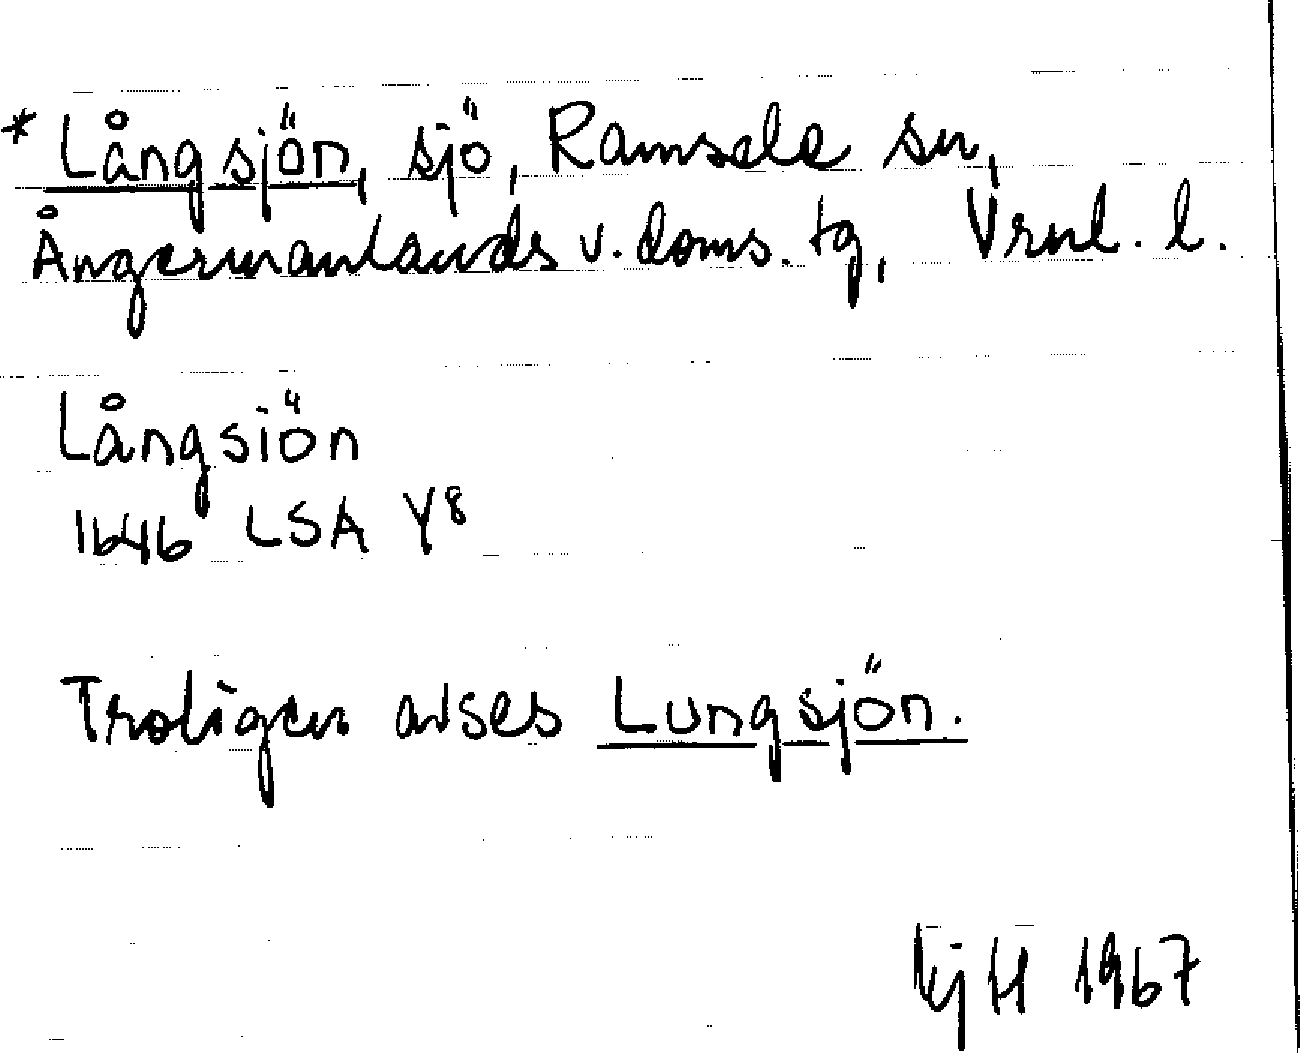 * Långsjön, sjö, Ramsele sn,
Ångermanlands v. doms. tg, Vrnl. l.
Långsiön
1646 LSA Y8
Troligen avses Lungsjön.
kjH 1967